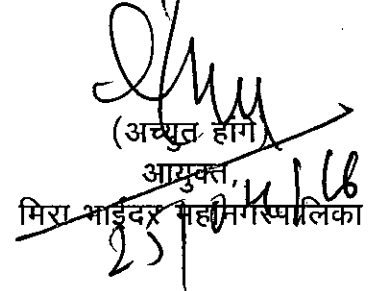 (अच्युत हांगे)
आयुक्त,
मिरा भाईंदर महानगरपालिका